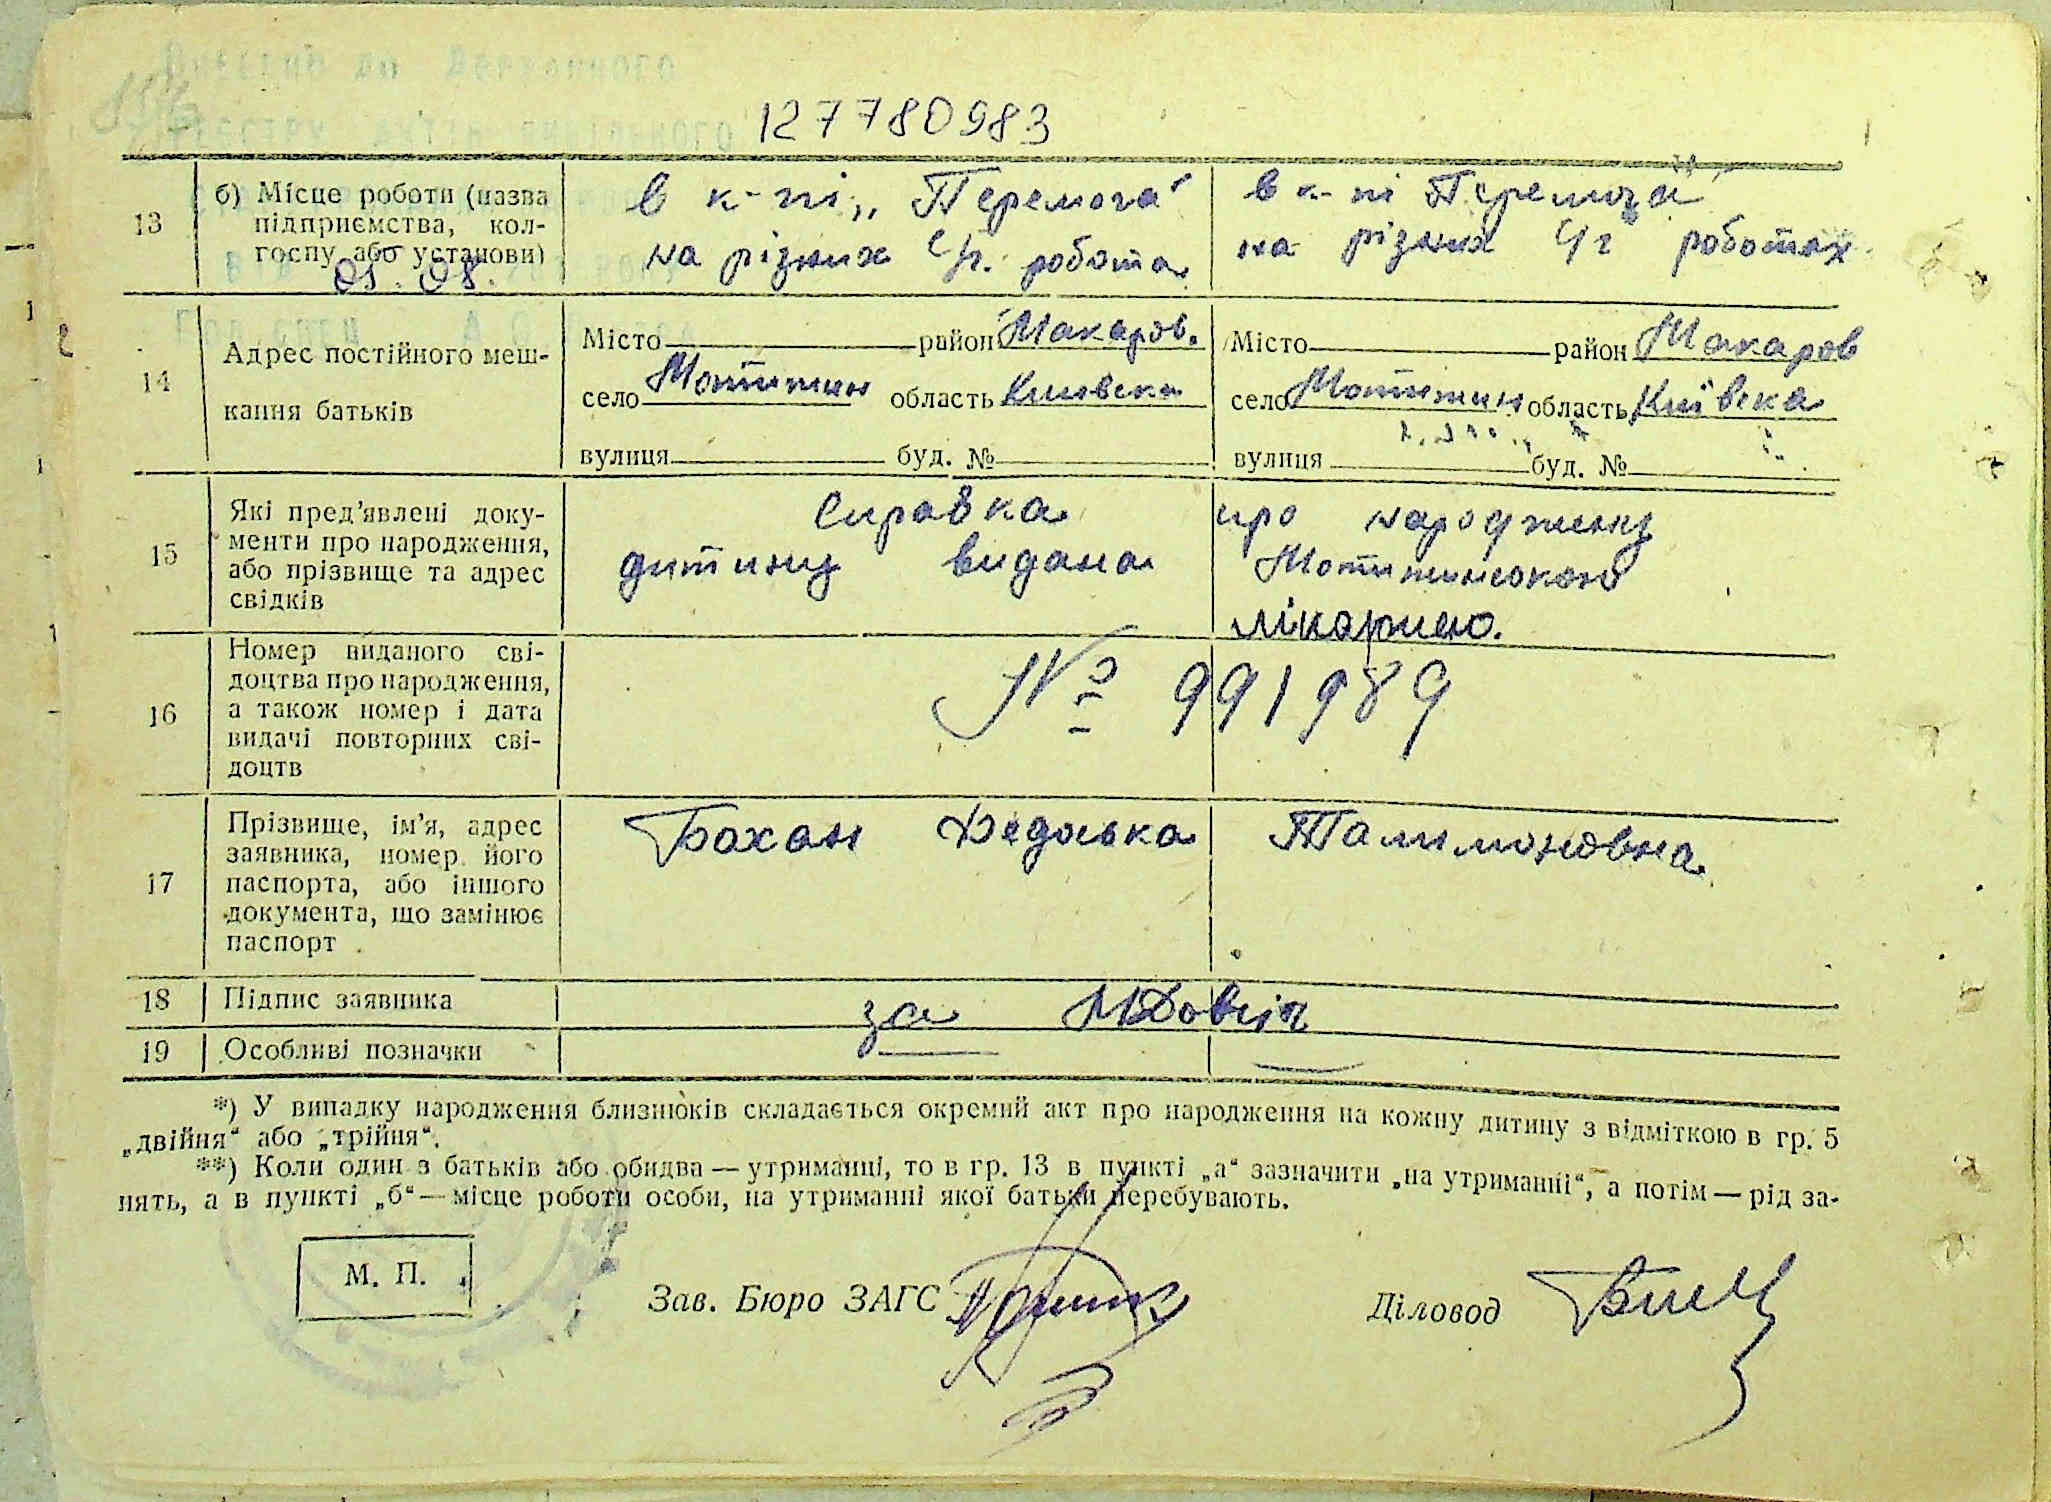 127780983
13
б) Місце роботи (назва
підприємства, кол-
госпу або установи)
в к-пі „Перемога"
на різних с/г. робота
в к-пі Перемога"
на різних с/г роботах
14
Адрес постійного меш-
кання батьків
Місто район Макаров.
село Мотижин область Київська
вулиця буд. №
Місто район Макаров
село Мотижин область Київська
вулиця буд. №
15
Які пред'явлені доку-
менти про народження,
або прізвище та адрес
свідків
Справка про народжену
дитину видана Мотижинською
лікарнею.
16
Номер виданого сві-
доцтва про народження,
а також номер і дата
видачі повторних сві-
доцтв
№ 991989
17
Прізвище, ім'я, адрес
заявника, номер його
паспорта, або іншого
документа, що замінює
паспорт
Бохан Федоська Талимоновна
18 Підпис заявника
за
19 Особливі позначки
*) У випадку народження близнюків складається окремий акт про народження на кожну дитину з відміткою в гр. 5
„двійня" або „трійня".
**) Коли один з батьків або обидва — утриманці, то в гр. 13 в пункті „а" зазначити „на утриманні", а потім — рід за-
нять, а в пункті „б" — місце роботи особи, на утриманні якої батьки перебувають.
М. П.
Зав. Бюро ЗАГС
Діловод